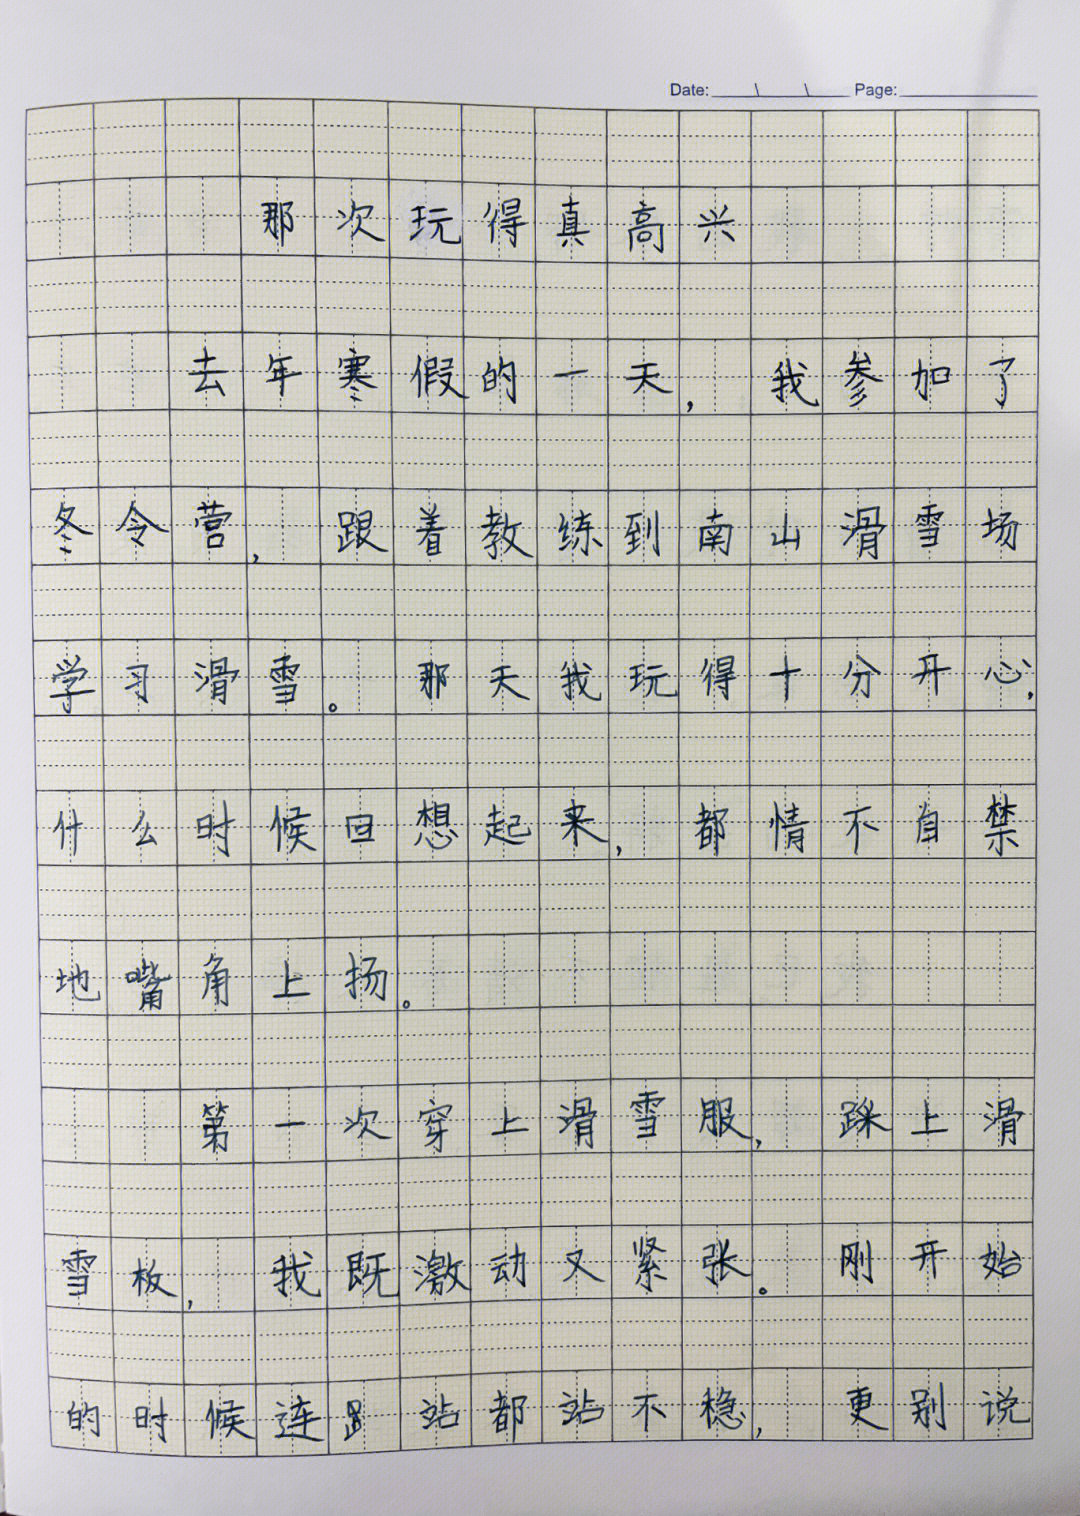 Date: \ \ Page:
那次玩得真高兴
去年寒假的一天，我参加了
冬令营，跟着教练到南山滑雪场
学习滑雪。那天我玩得十分开心，
什么时候回想起来，都情不自禁
地嘴角上扬。
第一次穿上滑雪服，踩上滑
雪板，我既激动又紧张。刚开始
的时候连站都站不稳，更别说